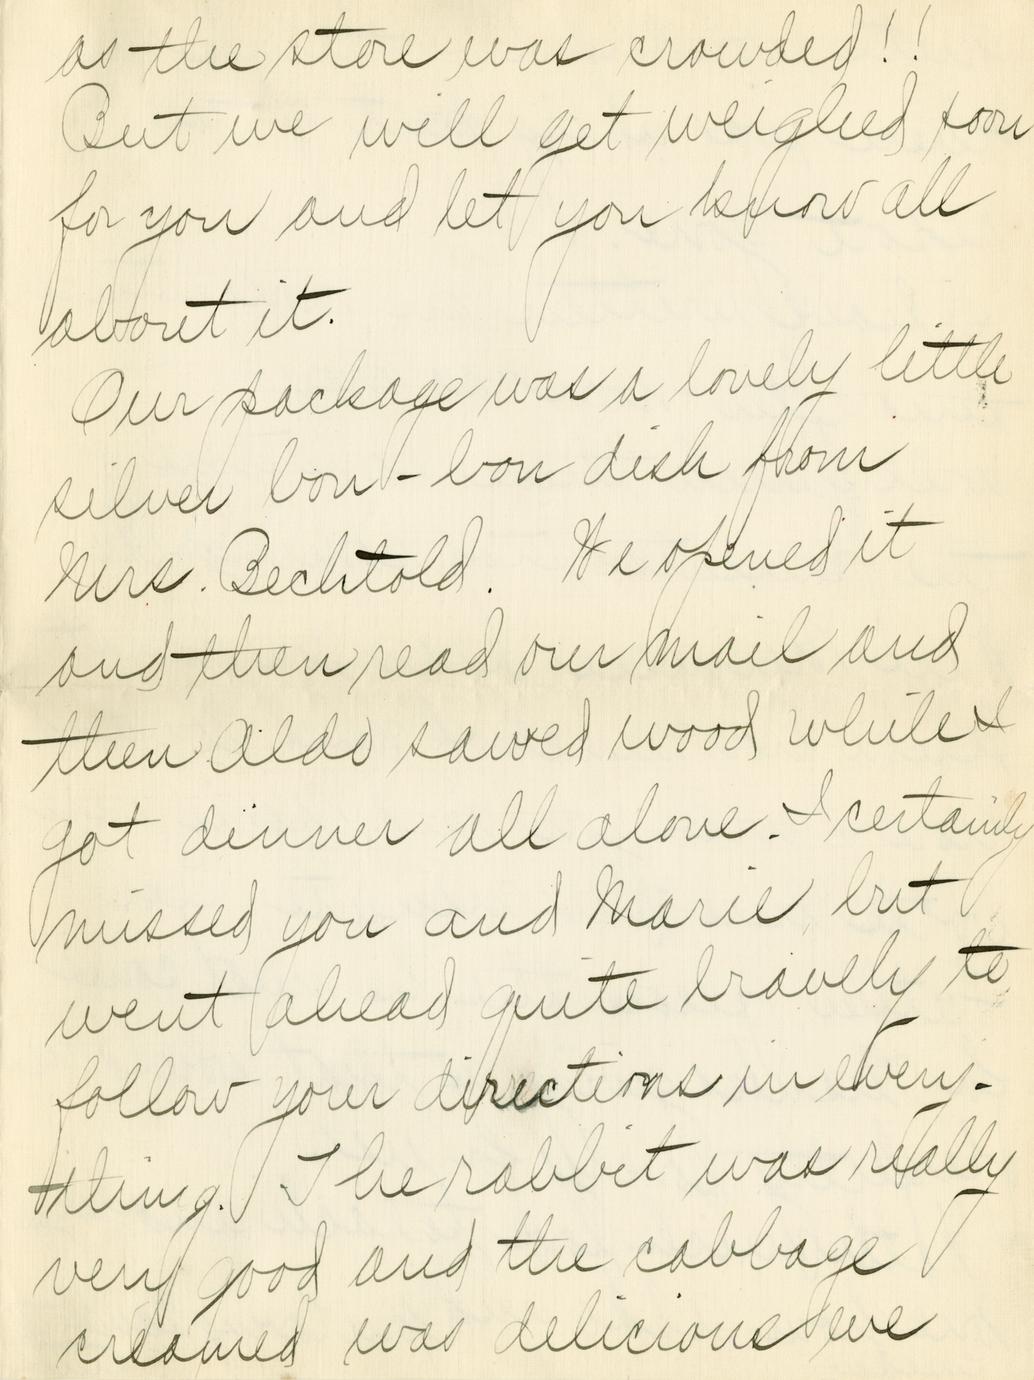 as the store was crowded!!
But we will get weighed soon
for you and let you know all
about it.
Our package was a lovely little
silver bon-bon dish from
Mrs. Bechtold. We opened it
and then read our mail and
then Aldo sawed wood while I
got dinner all alone. I certainly
missed you and Marie but
went ahead quite bravely to
follow your directions in every-
thing. The rabbit was really
very good and the cabbage
creamed was delicious we